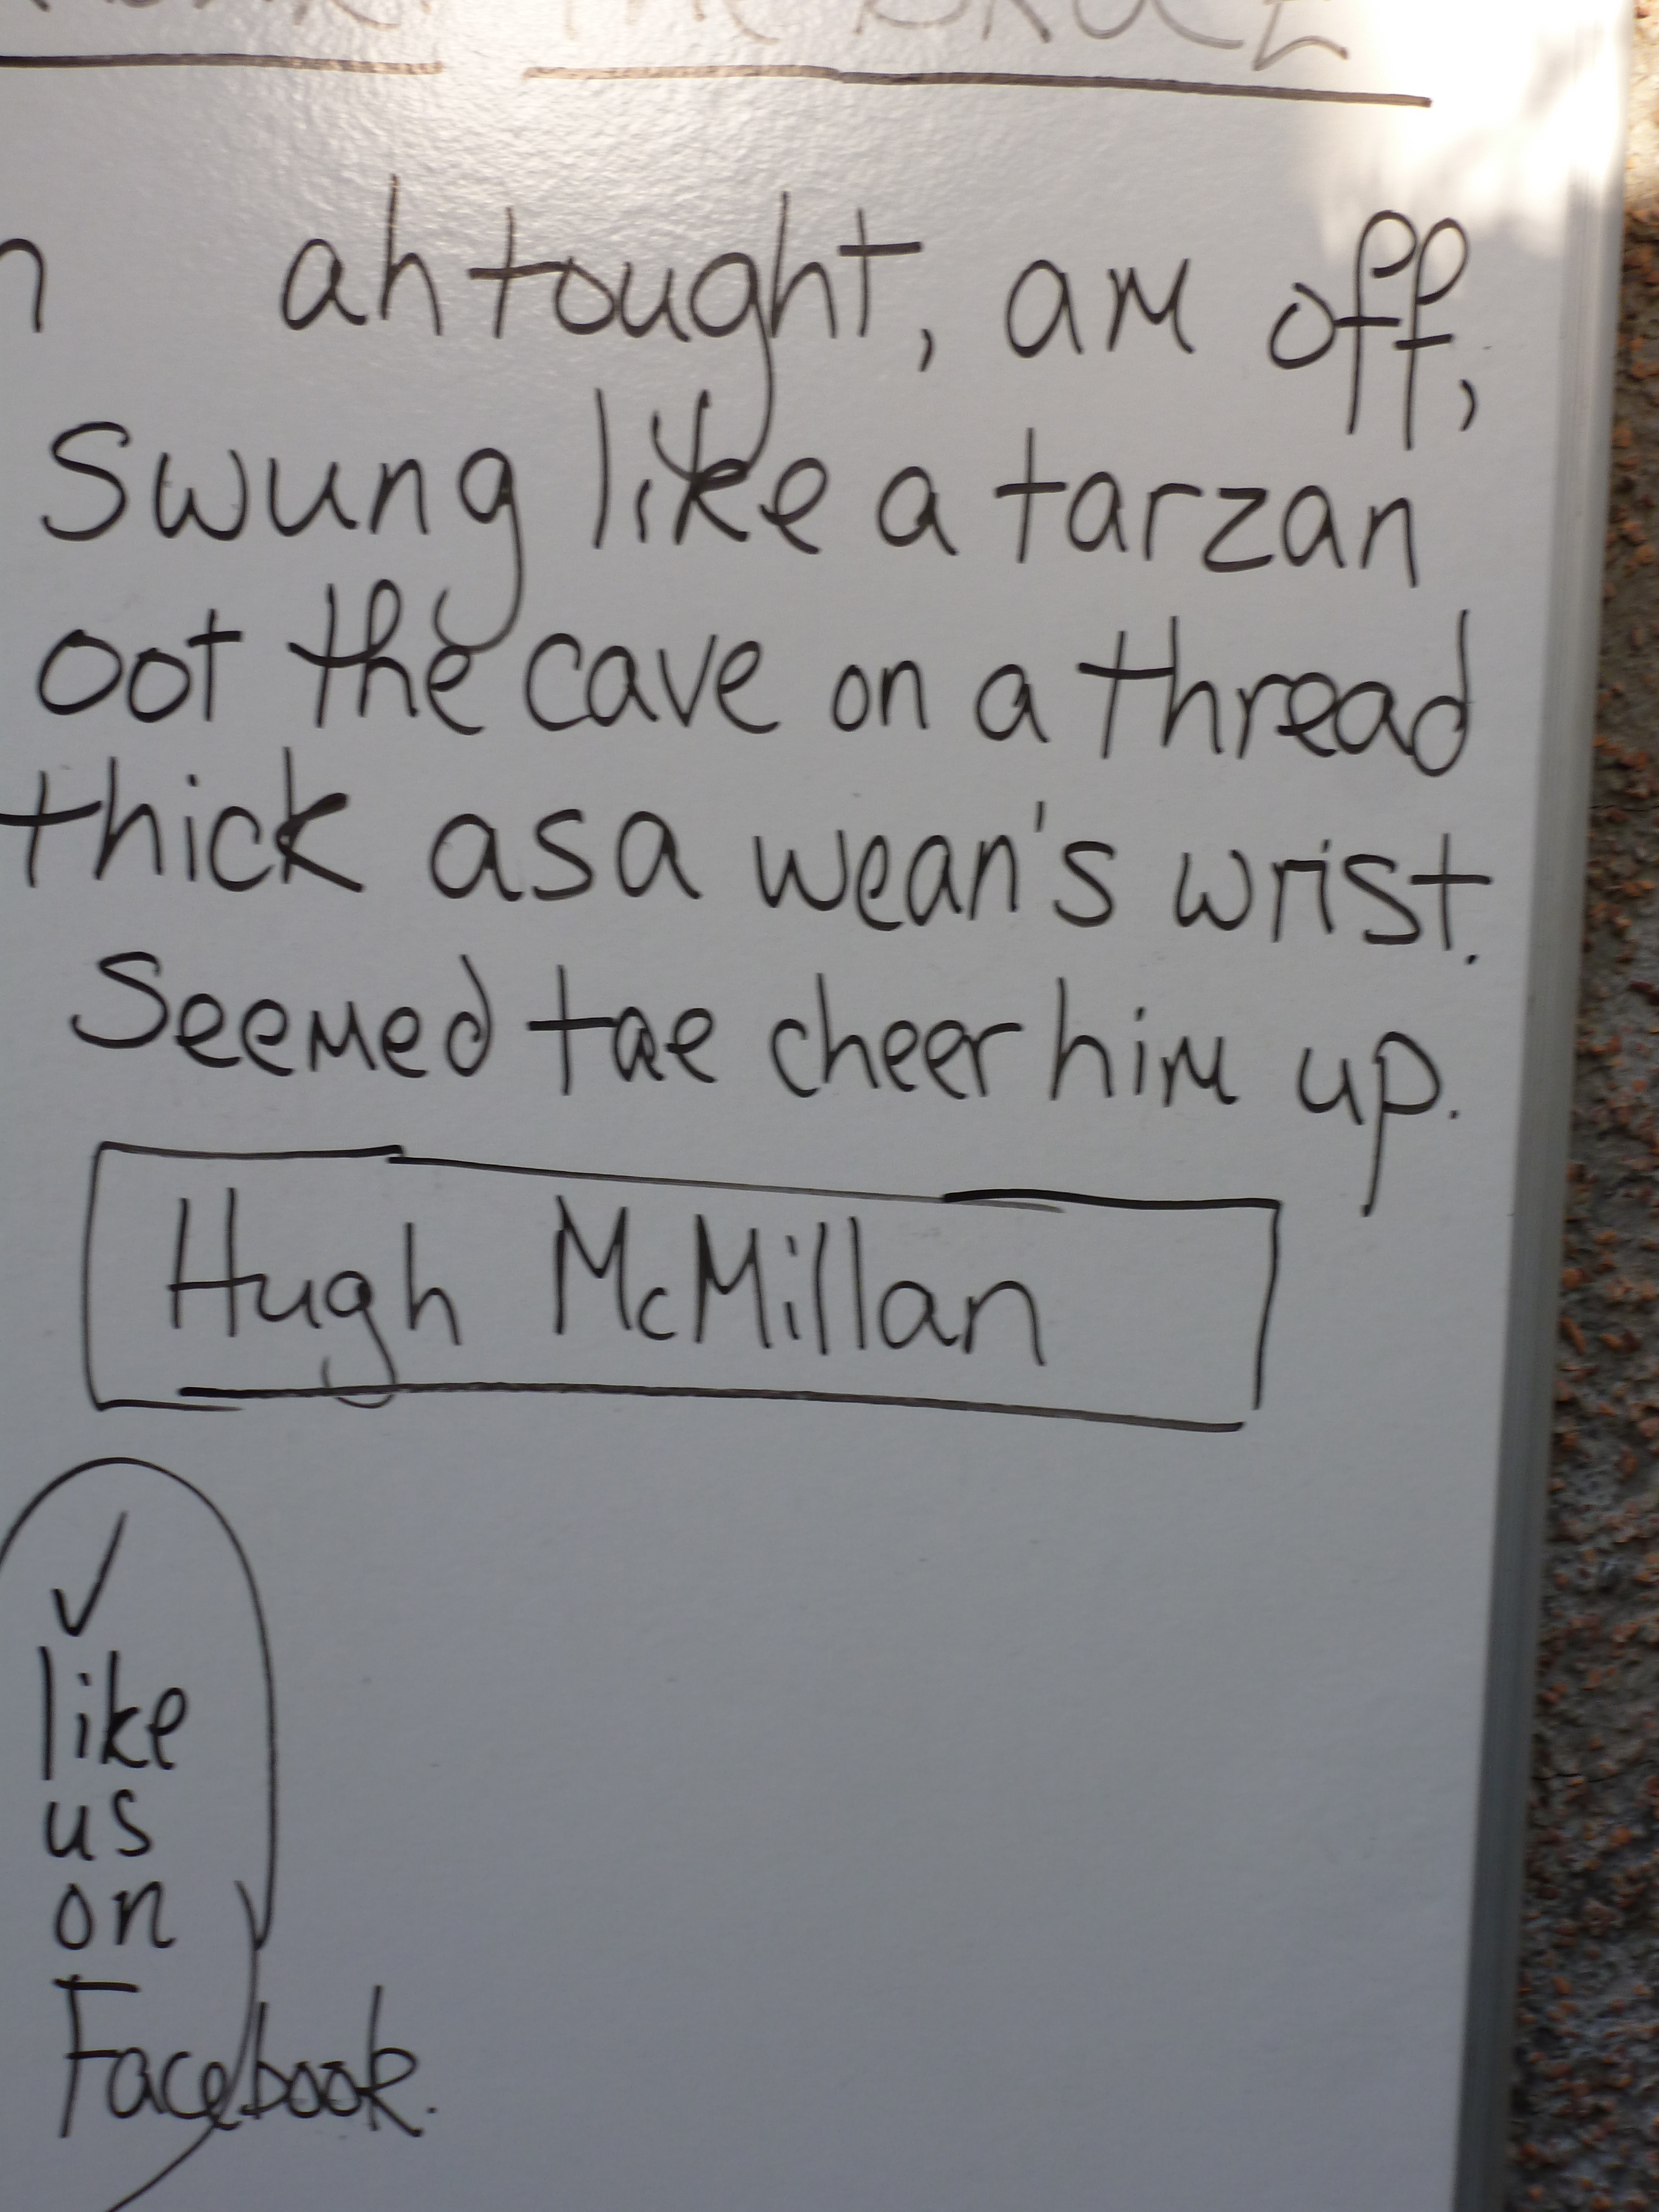 THE BRUCE
n ah tought, am off,
Swung like a tarzan
oot the cave on a thread
thick as a wean's wrist.
Seemed tae cheer him up.
Hugh McMillan
✓
like
us
on
Facebook.